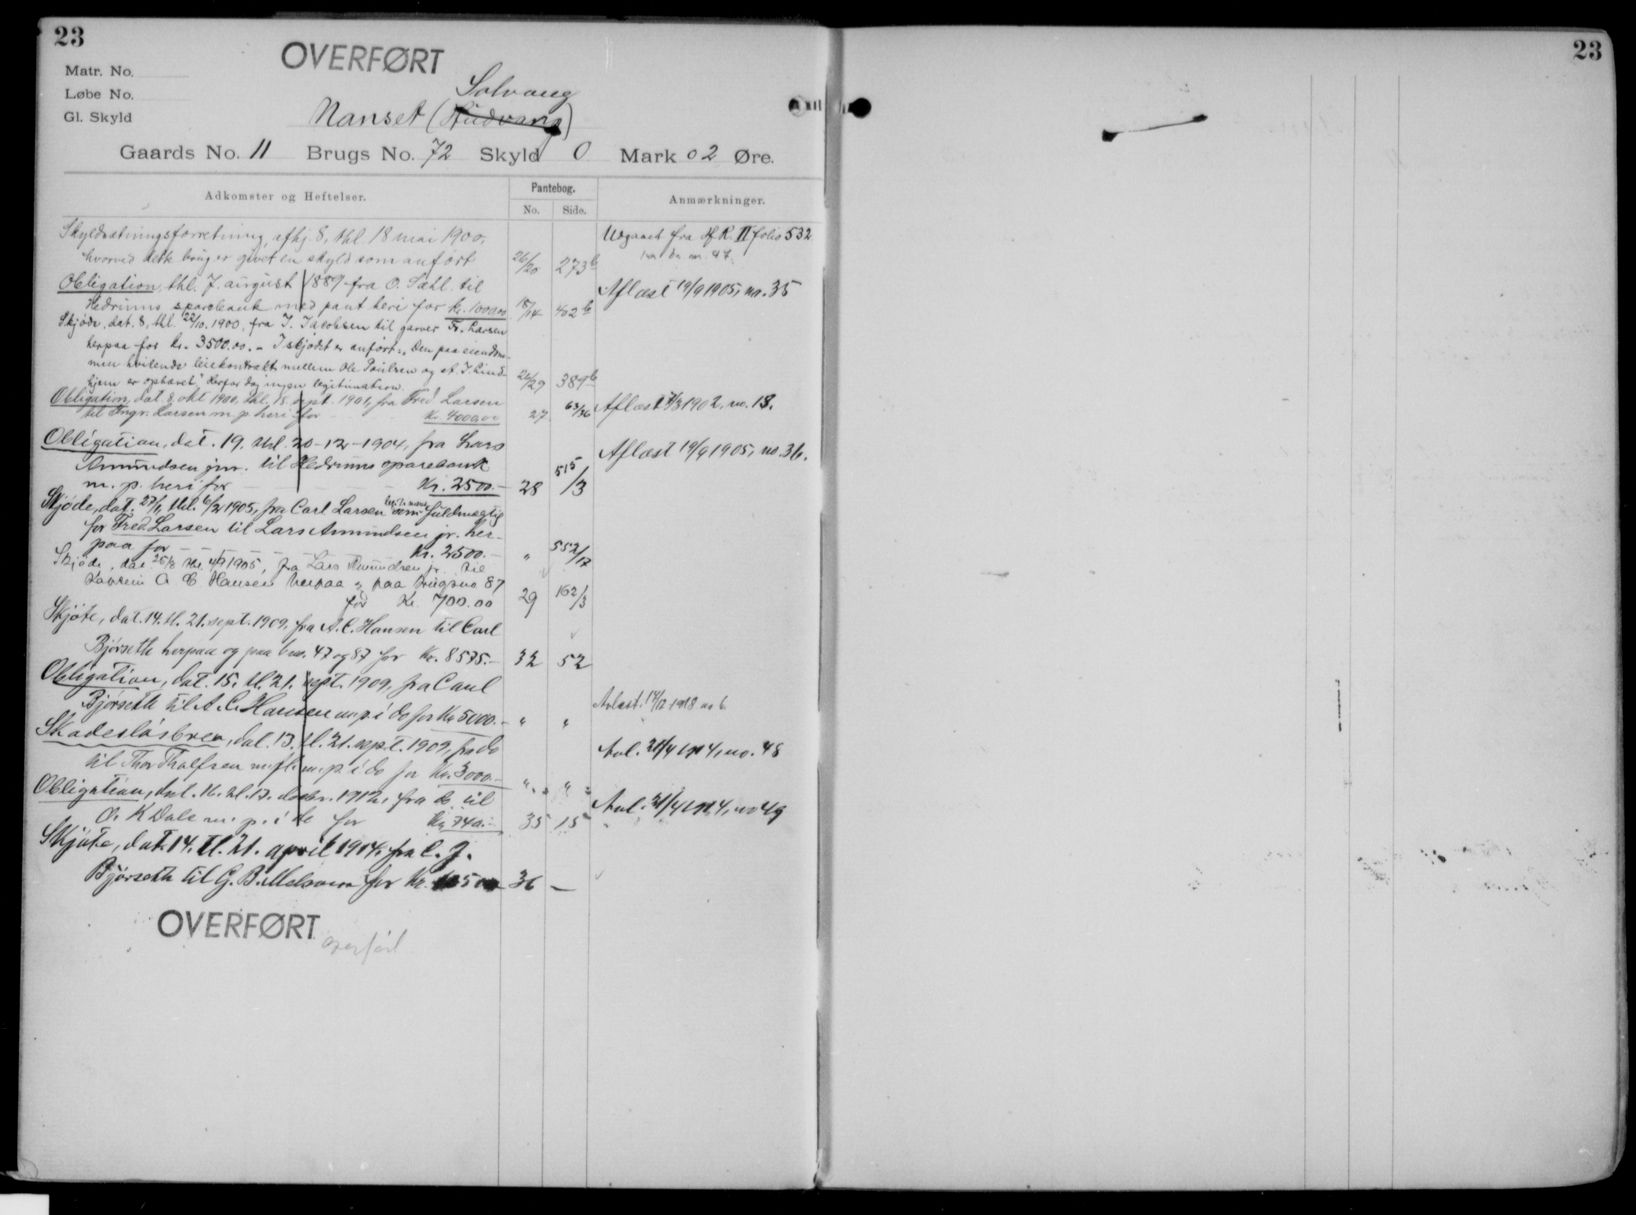 23
OVERFØRT
Matr. No.
Løbe No.
Gl. Skyld
Solvang
Nanset (Sudvang)
Gaards No. 11 Brugs No. 72 Skyld 0 Mark 02 Øre.
Adkomster og Heftelser. Pantebog. Anmærkninger.
No. Side.
Skyldsætningsforretning, afhj. 8, thl. 18 mai 1900, Udgaaet fra Pf. R. II folio 532
hvorved dette brug er givet en skyld som anført 26/20 273b fra bn nr. 47.
Obligation, thl. 7. august 1889 fra O. Dahl til Aflæst 19/9 1905, no. 35
Hedrums sparebank med pant heri for kr. 1000.00 18/14 402b
Skjøde, dat. 8, thl. 22/10. 1900, fra J. Jacobsen til garver Fr. Larsen
herpaa for kr. 3500.00. - I skjødet er anført: "Den paa eiendom-
men hvilende leiekontrakt mellem Ole Paulsen og st. J. Lind-
hjem er ophævet", herfor dog ingen legitimation. 26/29 389b
Obligation, dat. 8 okt 1900, thl. 18. sept. 1901, fra Fred Larsen
til Ingv. Larsen m. p. heri for kr. 4000.00 27 63/36 Aflæst 1902, no. 13.
Obligation, dat. 19, thl. 20-12-1904, fra Lars Aflæst 19/9 1905, no. 36.
Amundsen jnr. til Hedrums sparebank
m. p. heri for kr. 2500.- 28 515/3
Skjøde, dat. 27/1, thl. 6/2 1905, fra Carl Larsen som fuldmægtig
for Fred Larsen til Lars Amundsen jr. her-
paa for Kr. 2500.- " 552/17
Skjøde, dat 1905, fra Lars Amundsen jr. til
A C Hansen herpaa & paa brugsno 87
for Kr. 700.00 29 162/3
Skjøte, dat. 14. tl. 21. sept. 1909, fra A. C. Hansen til Carl
Bjørseth herpaa og paa bno. 47 og 87 for Kr. 8575.- 32 52
Obligation, dat. 15. tl. 21. sept. 1909, fra Carl
Bjørseth til A. C. Hansen m. p. i do for Kr. 5000.- " " Avlæst. 14/12 1918 no 6
Skadesløsbrev, dat. 13. tl. 21. sept. 1909, fra do Avl. 21/4 1914, no. 48
til Thor Thalfsen m. fl. m. p. i do for Kr. 3000.- " "
Obligation, dat. 16. tl. 17. decbr. 1912, fra do til Avl. 21/4 1914, no 49
O. K Dale m. p. i do for Kr. 740.- 35 15
Skjøte, dat. 14. tl. 21. april 1914, fra C. J.
Bjørseth til G. B. Melsom for Kr. 36 -
OVERFØRT
overført
23